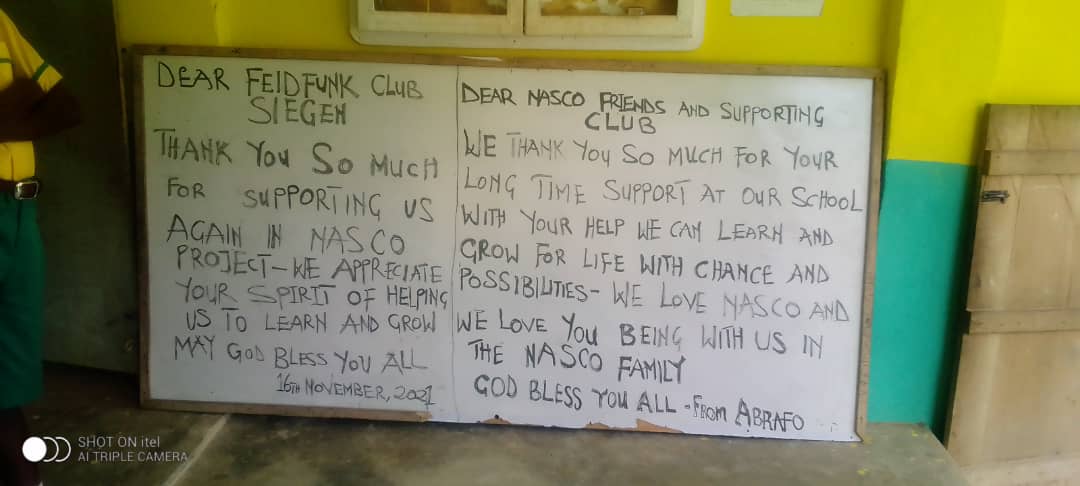 DEAR FEIDFUNK CLUB
SIEGEN
THANK YOU SO MUCH
FOR SUPPORTING US
AGAIN IN NASCO
PROJECT-WE APPRECIATE
YOUR SPIRIT OF HELPING
US TO LEARN AND GROW
MAY GOD BLESS YOU ALL
16TH NOVEMBER, 2021
DEAR NASCO FRIENDS AND SUPPORTING
CLUB
WE THANK YOU SO MUCH FOR YOUR
LONG TIME SUPPORT AT OUR SCHOOL
WITH YOUR HELP WE CAN LEARN AND
GROW FOR LIFE WITH CHANCE AND
POSSIBILITIES- WE LOVE NASCO AND
WE LOVE YOU BEING WITH US IN
THE NASCO FAMILY
GOD BLESS YOU ALL -FROM ABRAFO
SHOT ON itel
AI TRIPLE CAMERA